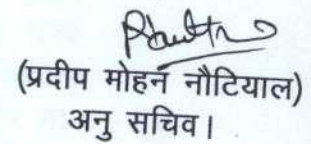 (प्रदीप मोहन नौटियाल)
अनु सचिव।